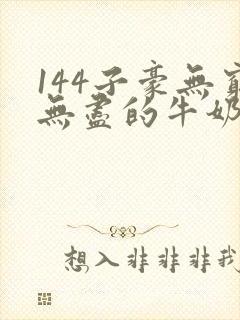 144子豪無窮
無盡的牛奶
想入非非非我